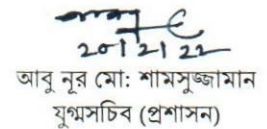 20।2।22
আবু নূর মো: শামসুজ্জামান
যুগ্মসচিব (প্রশাসন)